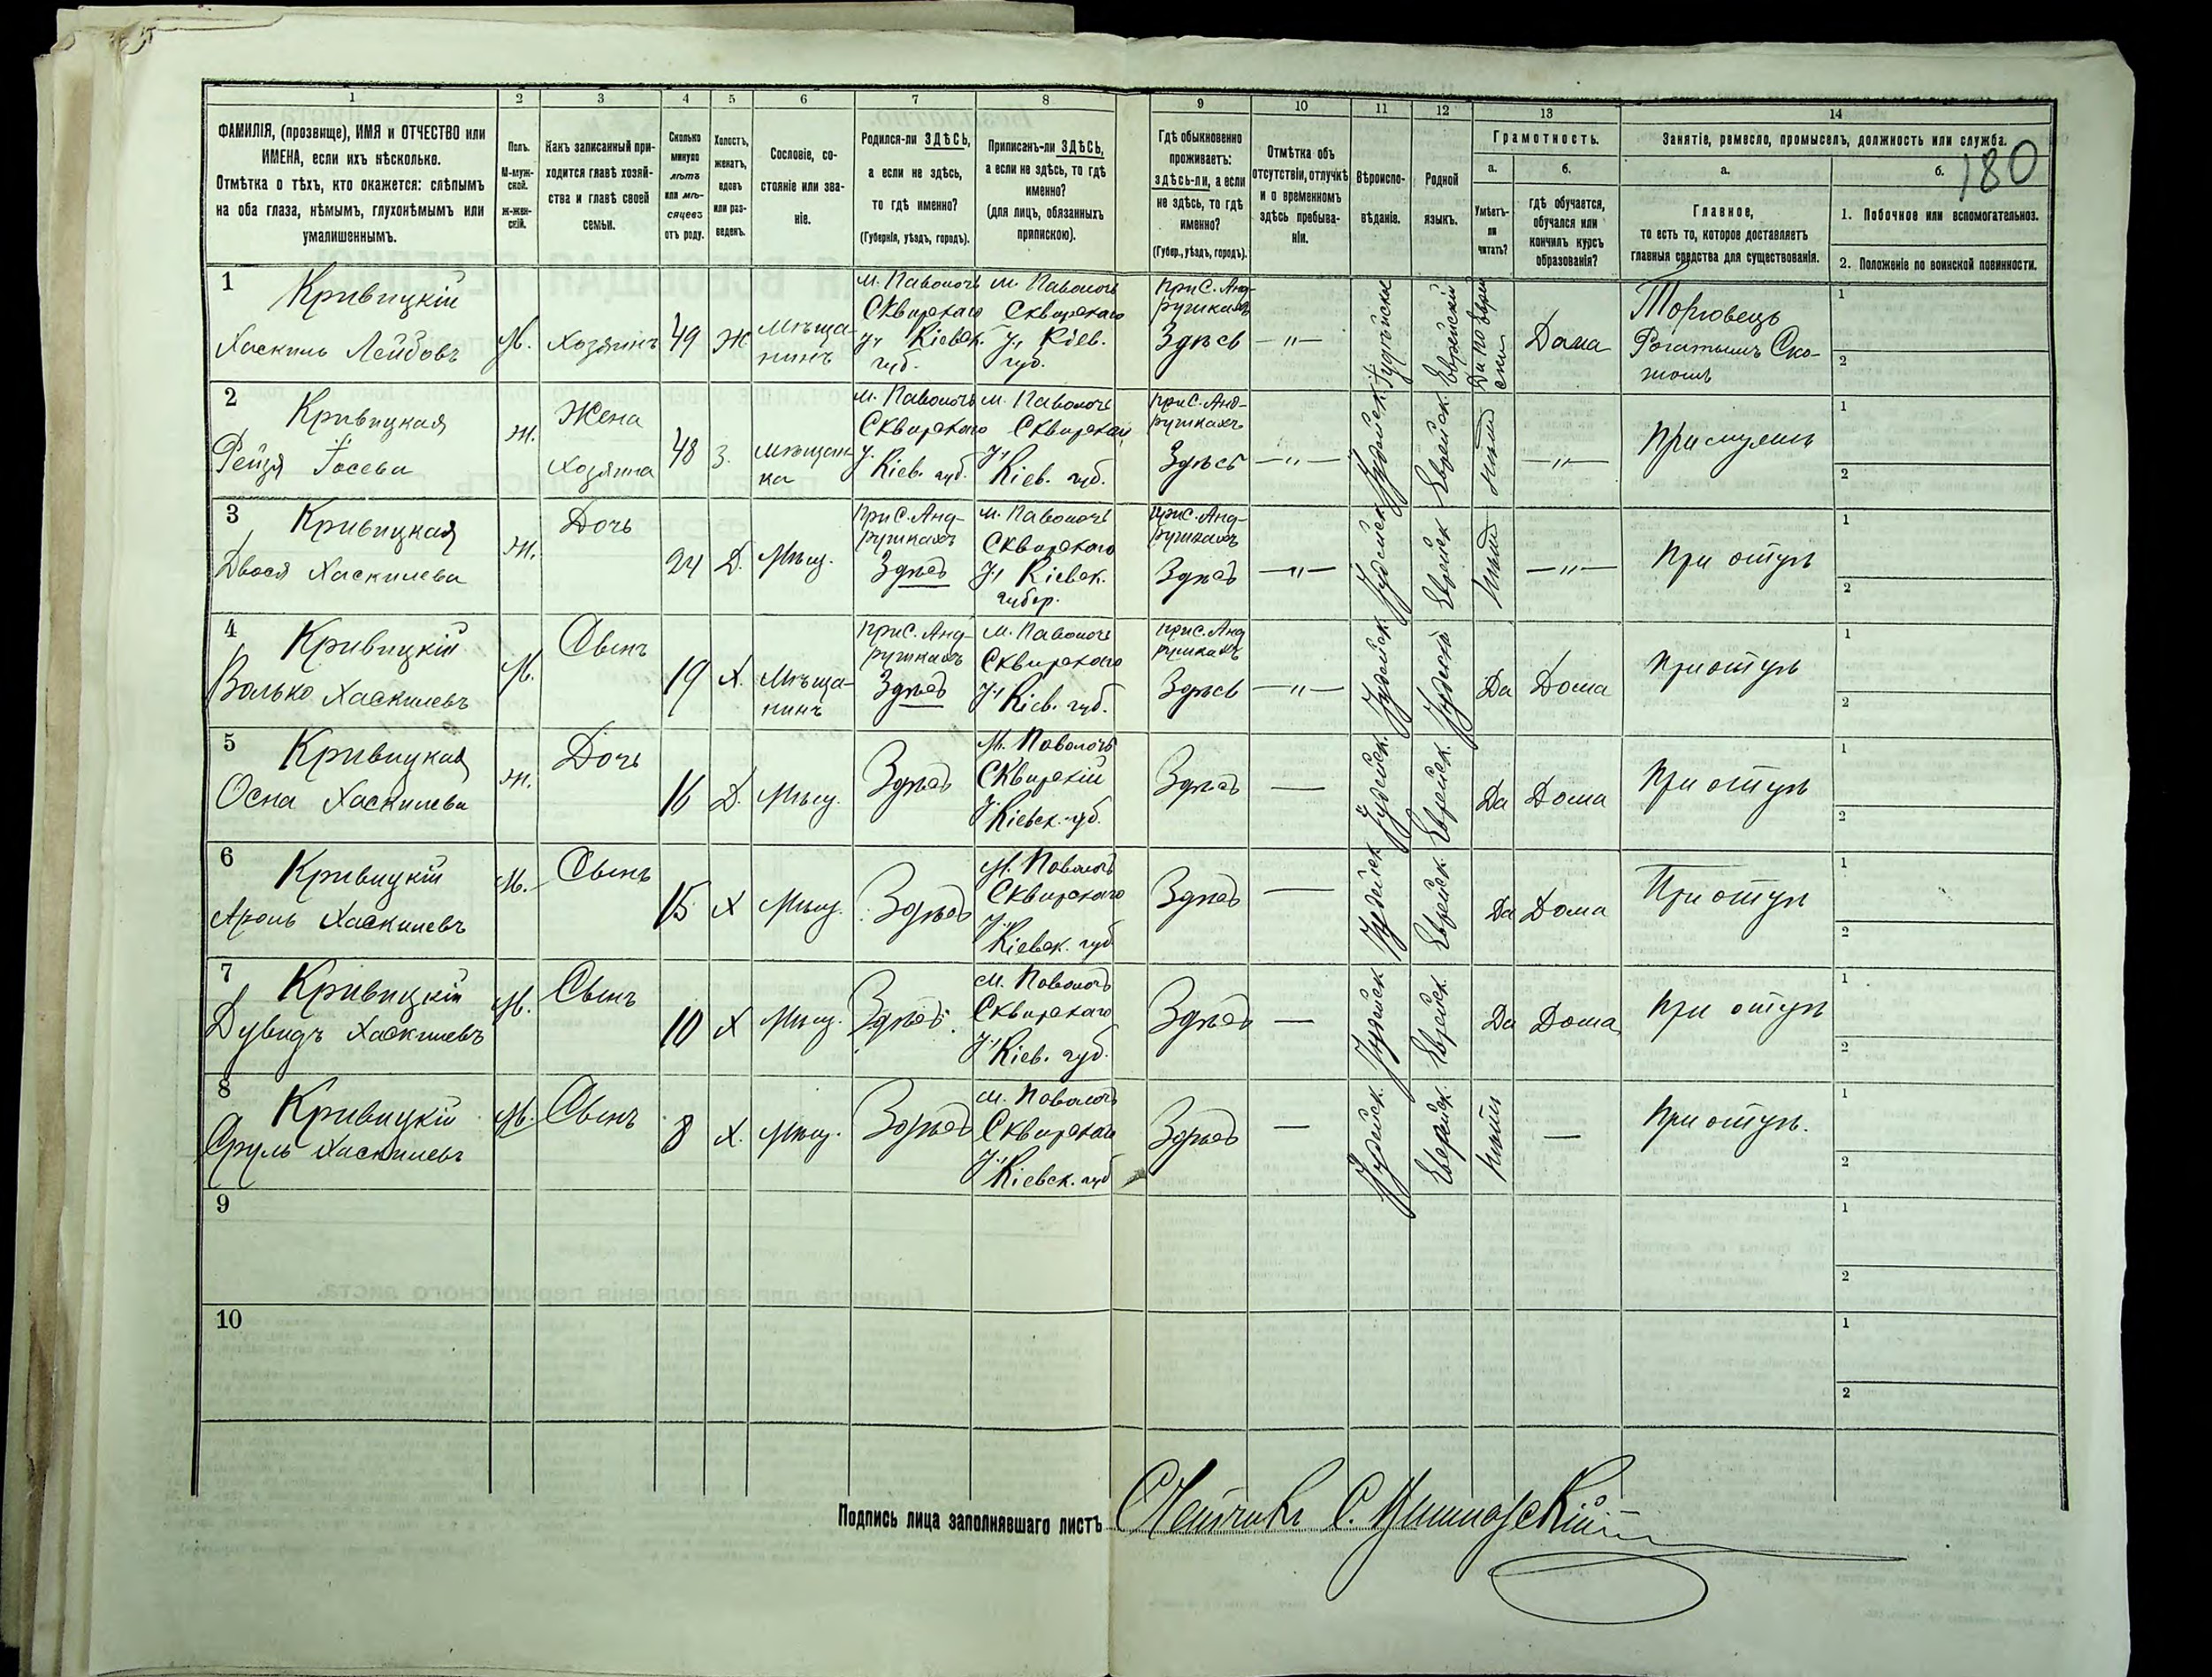 1 2 3 4 5 6 7 8 9 10 11 12 13 14
ФАМИЛІЯ, (прозвище), ИМЯ и ОТЧЕСТВО или
ИМЕНА, если ихъ нѣсколько.
Отмѣтка о тѣхъ, кто окажется: слѣпымъ
на оба глаза, нѣмымъ, глухонѣмымъ или
умалишеннымъ.
Полъ.
М-муж-
ской.
Ж-жен-
скій.
Какъ записанный при-
ходится главѣ хозяй-
ства и главѣ своей
семьи.
Сколько
минуло
лѣтъ
или мѣ-
сяцевъ
отъ роду.
Холостъ,
женатъ,
вдовъ
или раз-
веденъ.
Сословіе, со-
стояніе или зва-
ніе.
Родился-ли ЗДѢСЬ,
а если не здѣсь,
то гдѣ именно?
(Губернія, уѣздъ, городъ).
Приписанъ-ли ЗДѢСЬ,
а если не здѣсь, то гдѣ
именно?
(для лицъ, обязанныхъ
припискою).
Гдѣ обыкновенно
проживаетъ:
здѣсь-ли, а если
не здѣсь, то гдѣ
именно?
(Губер., уѣздъ, городъ).
Отмѣтка объ
отсутствіи, отлучкѣ
и о временномъ
здѣсь пребыва-
ніи.
Вѣроиспо-
вѣданіе.
Родной
языкъ.
Грамотность.
а.
Умѣетъ-
ли
читать?
б.
гдѣ обучается,
обучался или
кончилъ курсъ
образованія?
Занятіе, ремесло, промыселъ, должность или служба.
180
а.
Главное,
то есть то, которое доставляетъ
главныя средства для существованія.
б.
1. Побочное или вспомогательное.
2. Положеніе по воинской повинности.
1 Кривицкій
Хаскиль Лейбовъ
М.
Хозяинъ
49
Ж
Мѣща-
нинъ
м. Паволочь
Сквирскаго
у. Кіевск.
губ.
м. Паволочь
Сквирскаго
у. Кіев.
губ.
При С. Анд-
рушкахъ
Здѣсь
—"—
Іудейское
Еврейскій
Да по еврей
ски
Дома
Торговецъ
Рогатымъ Ско-
томъ
1
2
2 Кривицкая
Рейзя Іосева
Ж.
Жена
хозяина
48
З.
мѣщан-
ка
м. Паволочь
Сквирскаго
у. Кіев. губ.
м. Паволочь
Сквирскаго
у. Кіев. губ.
При С. Анд-
рушкахъ
Здѣсь
—"—
Іудейск.
Еврейск.
Нѣтъ
—"—
При мужѣ
1
2
3 Кривицкая
Двося Хаскилева
Ж.
Дочь
24
Д.
Мѣщ.
При С. Анд-
рушкахъ
Здѣсь
м. Паволочь
Сквирскаго
у. Кіевск.
губер.
При С. Анд-
рушкахъ
Здѣсь
—"—
Іудейск
Еврейск
Нѣтъ
—"—
При отцѣ
1
2
4 Кривицкій
Волько Хаскилевъ
М.
Сынъ
19
Х.
Мѣща-
нинъ
При С. Анд-
рушкахъ
Здѣсь
м. Паволочь
Сквирскаго
у. Кіев. губ.
При С. Анд
рушкахъ
Здѣсь
—"—
Іудейск
Да
Дома
При отцѣ
1
2
5 Кривицкая
Осна Хаскилева
Ж.
Дочь
16
Д.
Мѣщ.
Здѣсь
М. Поволочь
Сквирскій
у. Кіевск. губ.
Здѣсь
—
Іудейск
Еврейск.
Да
Дома
При отцѣ
1
2
6 Кривицкій
Аронь Хаскилевъ
М.
Сынъ
15
Х
Мѣщ.
Здѣсь
М. Поволочь
Сквирскаго
у. Кіевск. губ
Здѣсь
—
Іудейск
Еврейск.
Да
Дома
При отцѣ
1
2
7 Кривицкій
Дувидъ Хаскилевъ
М.
Сынъ
10
Х
Мѣщ.
Здѣсь
м. Поволочь
Сквирскаго
у. Кіев. губ.
Здѣсь
—
Іудейск
Еврейск.
Да
Дома
При отцѣ
1
2
8 Кривицкій
Сруль Хаскилевъ
М.
Сынъ
8
Х.
Мѣщ.
Здѣсь
м. Поволочь
Сквирскаго
у. Кіевск. губ
Здѣсь
—
Іудейск.
Еврейск.
Нѣтъ
—
При отцѣ.
1
2
9
1
2
10
1
2
Подпись лица заполнявшаго листъ Счетчикъ С.